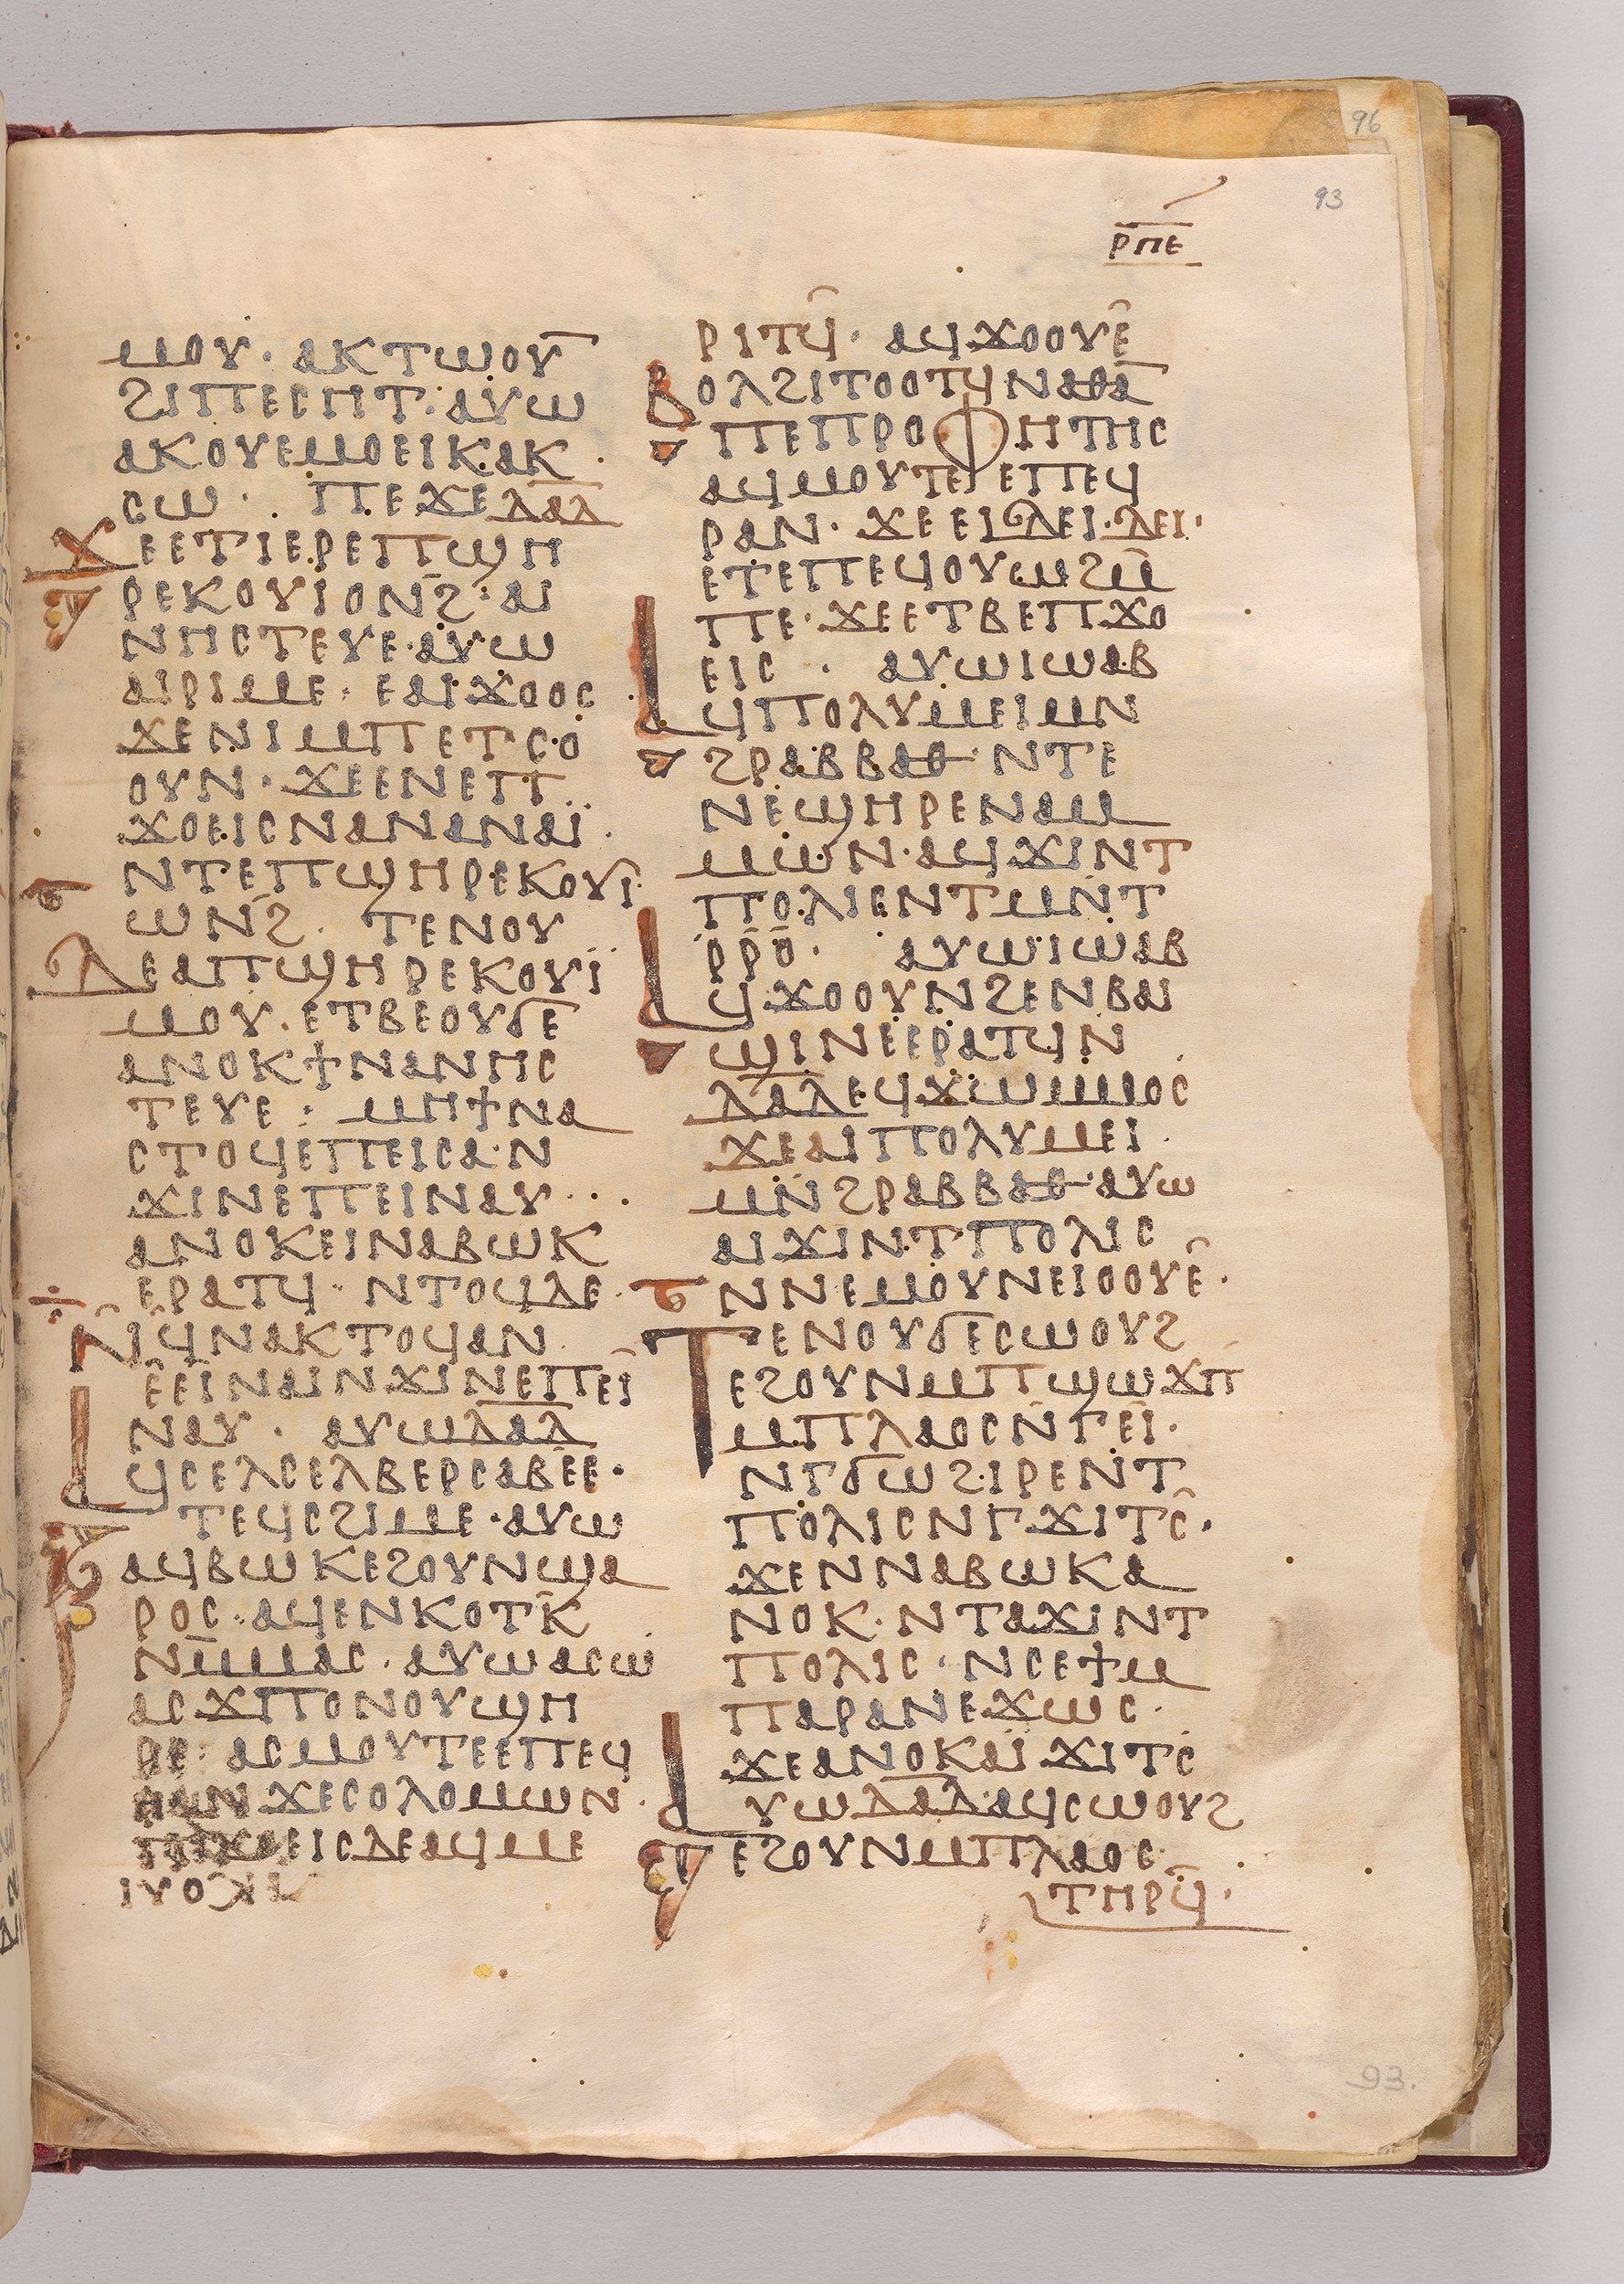 96
93
ⲣⲡⲉ
ⲙⲟⲩ· ⲁⲕⲧⲱⲟⲩ̅
ϩⲓⲡⲉⲥⲏⲧ· ⲁⲩⲱ
ⲁⲕⲟⲩⲉⲙⲟⲉⲓⲕ ⲁⲕ
ⲥⲱ· ⲡⲉϫⲉⲇⲁ̅ⲇ
ϫⲉⲉⲧⲓⲉⲣⲉⲡϣⲏ
ⲣⲉⲕⲟⲩⲓⲟⲛϩ̅· ⲁⲓ
ⲛⲏⲥⲧⲉⲩⲉ· ⲁⲩⲱ
ⲁⲓⲣⲓⲙⲉ· ⲉⲁⲓϫⲟⲟⲥ
ϫⲉⲛⲓⲙⲡⲉⲧⲥⲟ
ⲟⲩⲛ· ϫⲉⲉⲛⲉⲡ
ϫⲟⲉⲓⲥⲛⲁⲛⲁⲛⲁⲓ̈·
ⲛⲧⲉⲡϣⲏⲣⲉⲕⲟⲩⲓ̈
ⲱⲛϩ̅· ⲧⲉⲛⲟⲩ
ⲇⲉⲁⲡϣⲏⲣⲉⲕⲟⲩⲓ̈
ⲙⲟⲩ· ⲉⲧⲃⲉⲟⲩϭⲉ
ⲁⲛⲟⲕϯⲛⲁⲛⲏⲥ
ⲧⲉⲩⲉ: ⲙⲏϯⲛⲁ
ⲥⲧⲟϥⲉⲡⲉⲓⲥⲁ·ⲛ
ϫⲓⲛⲉⲡⲉⲓⲛⲁⲩ·
ⲁⲛⲟⲕⲉⲓⲛⲁⲃⲱⲕ
ⲉⲣⲁⲧϥ· ⲛⲧⲟϥⲇⲉ·
ⲛ̅ⲓϥⲛⲁⲕⲧⲟϥⲁⲛ
ⲉ̂ⲉ̂ⲓⲛⲁⲓⲛϫⲓⲛⲉⲡⲉⲓ̂
ⲛⲁⲩ· ⲁⲩⲱⲇⲁ̅ⲇ
ⲁϥⲥⲉⲗⲥⲉⲗⲃⲉⲣⲥⲁⲃⲉⲉ·
ⲧⲉϥⲥϩⲓⲙⲉ· ⲁⲩⲱ
ⲁϥⲃⲱⲕⲉϩⲟⲩⲛϣⲁ
ⲣⲟⲥ· ⲁϥⲉⲛⲕⲟⲧⲕ̅
ⲛⲙ̅ⲙⲁⲥ· ⲁⲩⲱⲁⲥⲱ
ⲁⲥϫⲡⲟⲛⲟⲩϣⲏ
ⲣⲉ· ⲁⲥⲙⲟⲩⲧⲉⲉⲡⲉϥ
ⲣⲁⲛϫⲉⲥⲟⲗⲟⲙⲱⲛ·
ⲡϫⲟⲉⲓⲥⲇⲉⲁϥⲙⲉ
ⲣⲓⲧϥ̂· ⲁϥϫⲟⲟⲩⲉ̂
ⲃⲟⲗϩⲓⲧⲟⲟⲧϥⲛⲁⲑⲁ̅
ⲡⲉⲡⲣⲟⲫⲏⲧⲏⲥ
ⲁϥⲙⲟⲩⲧⲉⲉⲡⲉϥ
ⲣⲁⲛ· ϫⲉⲉⲓⲇⲉⲓ·ⲇⲉⲓ·
ⲉⲧⲉⲡⲉϥⲟⲩⲱϩⲙ̅
ⲡⲉ· ϫⲉⲉⲧⲃⲉⲡϫⲟ
ⲉⲓⲥ· ⲁⲩⲱⲓⲱⲁⲃ
ⲁϥⲡⲟⲗⲩⲙⲉⲓⲙⲛ
ϩⲣⲁⲃⲃⲁⲑ· ⲛⲧⲉ
ⲛⲉϣⲏⲣⲉⲛⲁⲙ
ⲙⲱⲛ· ⲁϥϫⲓⲛⲧ
ⲡⲟⲗⲓⲉⲛⲧⲙⲛⲧ
ⲣ̅ⲣ̅ⲟ̅· ⲁⲩⲱⲓⲱⲁⲃ
ⲁϥϫⲟⲟⲩⲛϩⲉⲛⲃⲁⲓ
ϣⲓⲛⲉⲉⲣⲁⲧϥⲛ
ⲇⲁ̅ⲇⲉϥϫⲱⲙⲙⲟⲥ
ϫⲉⲁⲓⲡⲟⲗⲩⲙⲉⲓ·
ⲙⲛϩⲣⲁⲃⲃⲁⲑ· ⲁⲩⲱ
ⲁⲓϫⲓⲛⲧⲡⲟⲗⲓⲥ
ⲛⲛⲉⲙⲟⲩⲛⲉⲓⲟⲟⲩⲉ̂·
ⲧⲉⲛⲟⲩϭⲉⲥⲱⲟⲩϩ
ⲉϩⲟⲩⲛⲙⲡϣⲱϫⲡ̅
ⲙⲡⲗⲁⲟⲥⲛ̅ⲅⲉ̅ⲓ·
ⲛⲅϭⲱϩ·ⲓⲣⲉⲛⲧ
ⲡⲟⲗⲓⲥⲛⲅϫⲓⲧⲥ̂·
ϫⲉⲛⲛⲁⲃⲱⲕⲁ
ⲛⲟⲕ· ⲛⲧⲁϫⲓⲛⲧ
ⲡⲟⲗⲓⲥ· ⲛⲥⲉϯⲙ
ⲡⲁⲣⲁⲛⲉϫⲱⲥ·
ϫⲉⲁⲛⲟⲕⲁⲓ̈ϫⲓⲧⲥ
ⲁⲩⲱⲇⲁ̅ⲇ·ⲁϥⲥⲱⲟⲩϩ
ⲉϩⲟⲩⲛⲙⲡⲗⲁⲟⲥ
ⲧⲏⲣϥ̅·
93.